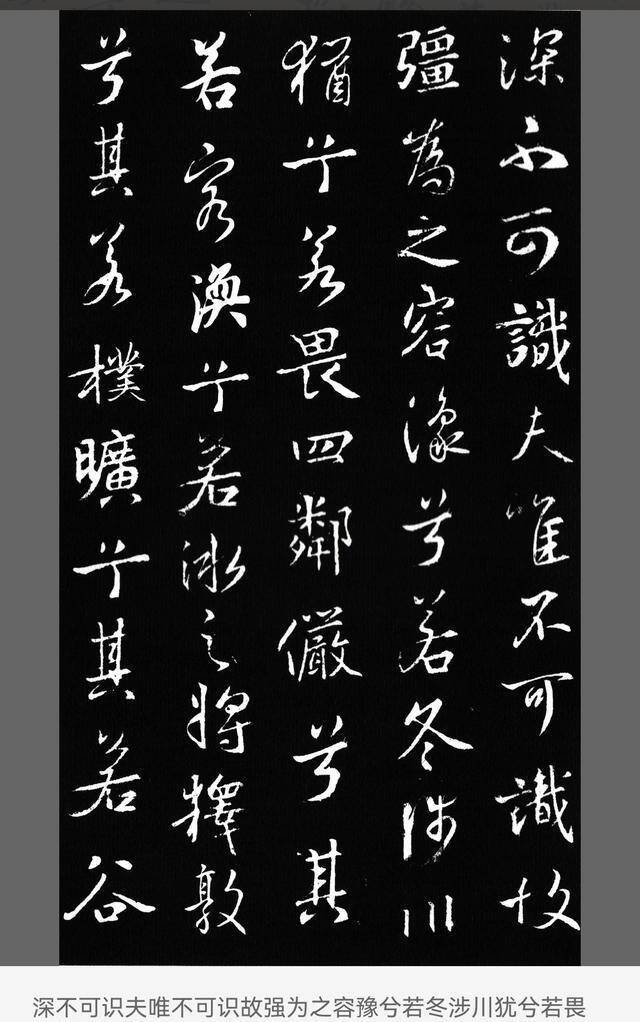 深不可識夫唯不可識故
彊為之容豫兮若冬涉川
猶兮若畏四鄰儼兮其
若客渙兮若冰之將釋敦
兮其若樸曠兮其若谷
深不可识夫唯不可识故强为之容豫兮若冬涉川犹兮若畏